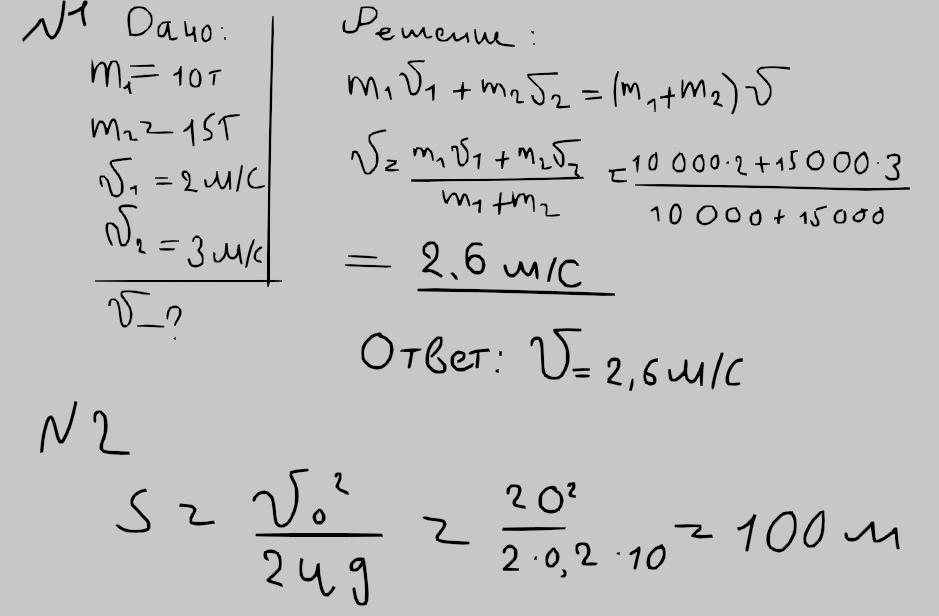 N1 Дано:
m₁ = 10т
m₂ = 15т
v₁ = 2 м/с
v₂ = 3 м/с
v – ?
Решение:
m₁v₁ + m₂v₂ = (m₁ + m₂) v
v = (m₁v₁ + m₂v₂)/(m₁ + m₂) = (10 000·2 + 15 000·3)/(10 000 + 15 000)
= 2.6 м/с
Ответ: v = 2,6 м/с
N2
S = v₀²/2μg = 20²/2·0,2·10 = 100 м